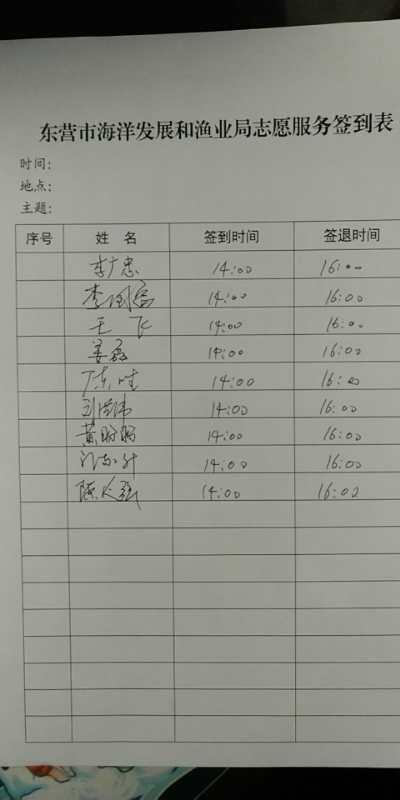 东营市海洋发展和渔业局志愿服务签到表
时间：
地点：
主题：
序号 姓 名 签到时间 签退时间
李广忠 14:00 16:00
李国富 14:00 16:00
王飞 14:00 16:00
姜磊 14:00 16:00
14:00 16:00
刘洪伟 14:00 16:00
黄盼盼 14:00 16:00
14:00 16:00
陈大强 14:00 16:00